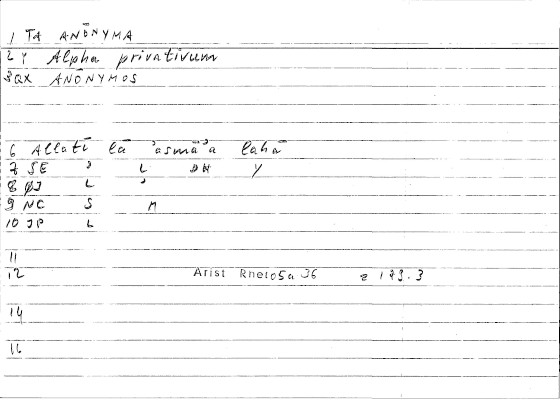 1 TA ANŌNYMA
2 Y Alpha privativum
3 QX ANŌNYMOS
6 Allatī lā 'asmā'a lahā
7 SE ' L DH Y
8 ØJ L '
9 NC S M
10 JP L
11
12 Arist Rhet 05a 36 = 179.3
14
16